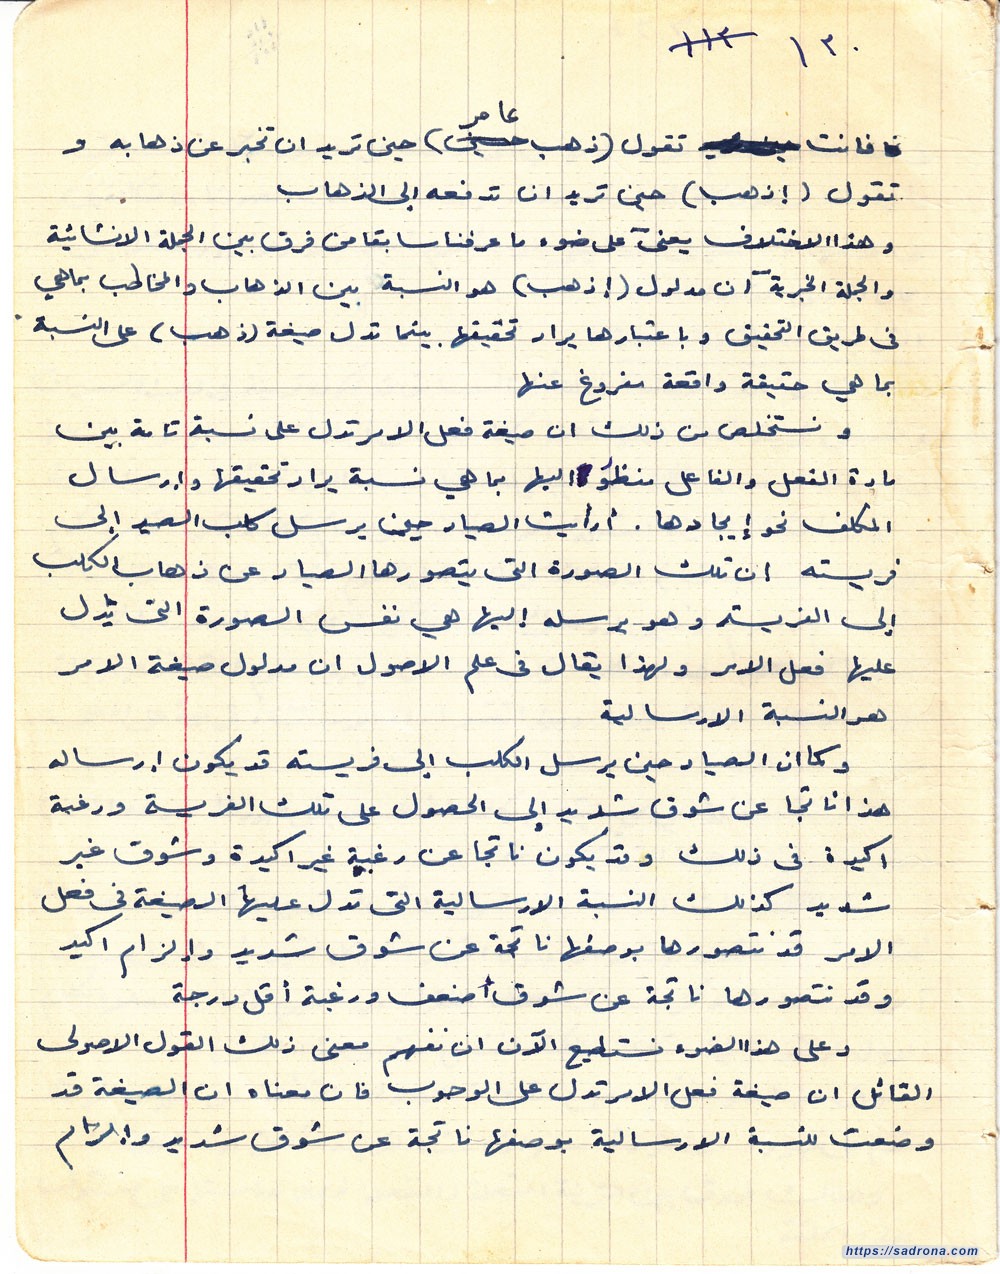 ١٣٠ ١١٣
عامر
فانت تقول (ذهب) حين تريد ان تخبر عن ذهابه و
تقول (إذهب) حين تريد ان تدفعه إلى الذهاب
وهذا الاختلاف يعني على ضوء ما عرفنا سابقا من فرق بين الجملة الانشائية
والجملة الخبرية أن مدلول (إذهب) هو النسبة بين الذهاب والمخاطب بما هي
في طريق التحقيق وباعتبارها يراد تحقيقها بينما تدل صيغة (ذهب) على النسبة
بما هي حقيقة واقعة مفروغ عنها
ونستخلص من ذلك ان صيغة فعل الامر تدل على نسبة تامة بين
مادة الفعل والفاعل منظورا اليها بما هي نسبة يراد تحقيقها وإرسال
المكلف نحو إيجادها . أرأيت الصياد حين يرسل كلب الصيد إلى
فريسته ان تلك الصورة التي يتصورها الصياد عن ذهاب الكلب
إلى الفريسة وهو يرسله إليها هي نفس الصورة التي يدل
عليها فعل الامر ولهذا يقال في علم الاصول ان مدلول صيغة الامر
هو النسبة الارسالية
وكما ان الصياد حين يرسل الكلب إلى فريسته قد يكون إرساله
هذا ناتجا عن شوق شديد إلى الحصول على تلك الفريسة ورغبة
اكيدة في ذلك وقد يكون ناتجا عن رغبة غير اكيدة وشوق غير
شديد كذلك النسبة الارسالية التي تدل عليها الصيغة في فعل
الامر قد نتصورها بوصفها ناتجة عن شوق شديد وإلزام اكيد
وقد نتصورها ناتجة عن شوق أضعف ورغبة أقل درجة
وعلى هذا الضوء نستطيع الآن ان نفهم معنى ذلك القول الاصولي
القائل ان صيغة فعل الامر تدل على الوجوب فان معناه ان الصيغة قد
وضعت للنسبة الارسالية بوصفها ناتجة عن شوق شديد وإلزام
https://sadrona.com